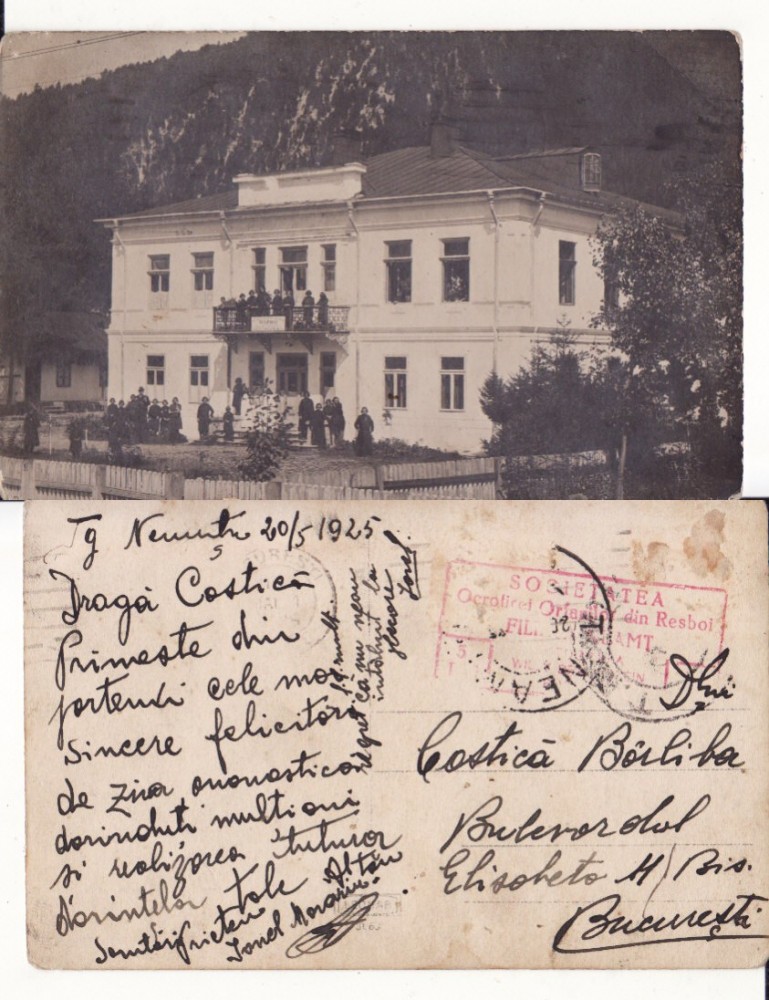 Tg Nemțu 20/5 1925
Dragă Costică
Primește din
partendi cele mai
sincere felicitări
de ziua onomastică
dorindu-ți multi ani
si realizarea tuturor
dorintelor tale
Al tău
prieten
Ionel Morariu.
că nu neau
intalnit la
Ionel
SOCIETATEA
Ocrotirei Orfanilor din Resboi
FIL.
NEAMT
Dlui
Costică Börliba
Bulevardul
Elisabeta 11 Bis.
București